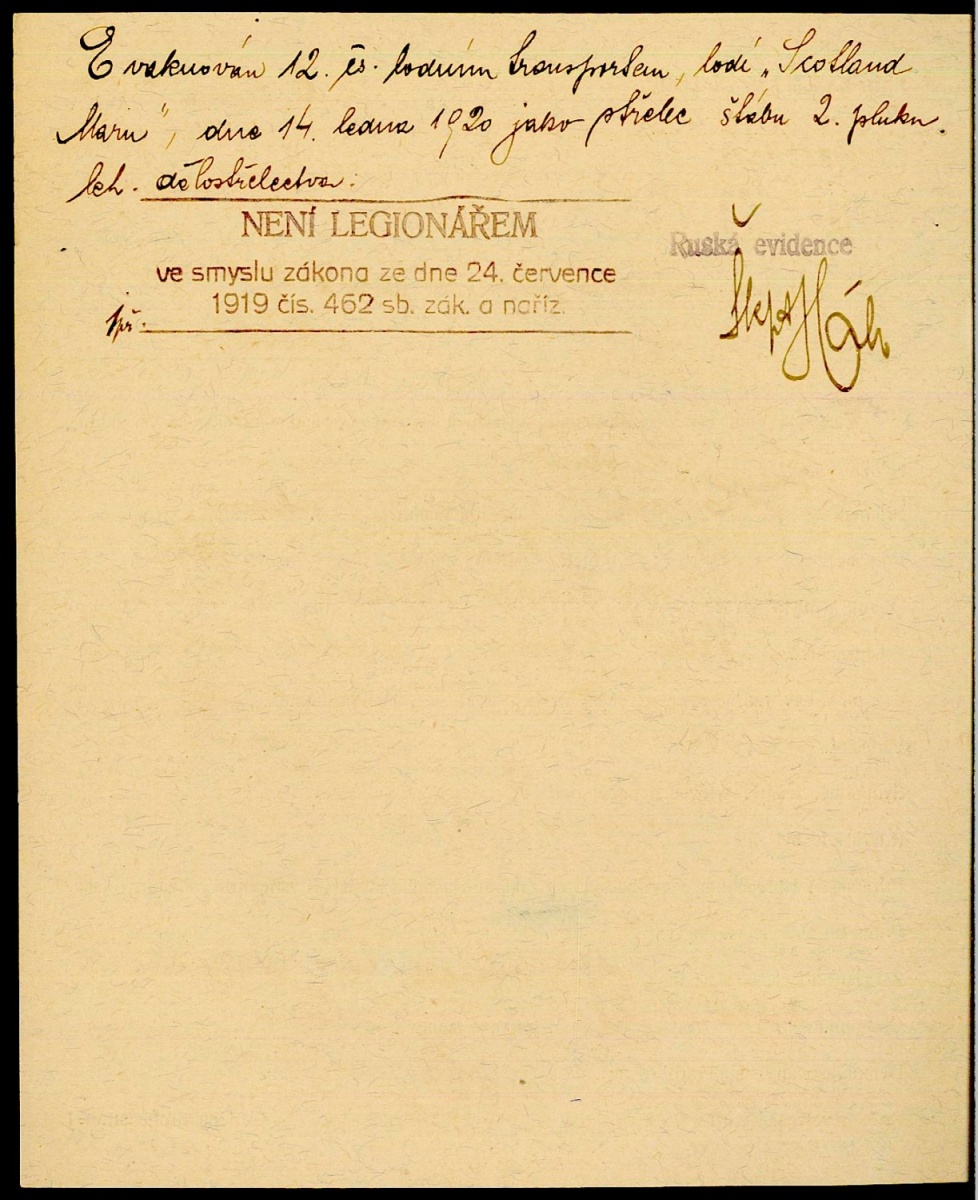 Evakuován 12. čs. lodním transportem, lodí „Scotland
Maru", dne 14. ledna 1920 jako střelec štábu 2. pluku
leh. dělostřelectva.
NENÍ LEGIONÁŘEM
ve smyslu zákona ze dne 24. července
1919 čís. 462 sb. zák. a naříz.
Ruská evidence